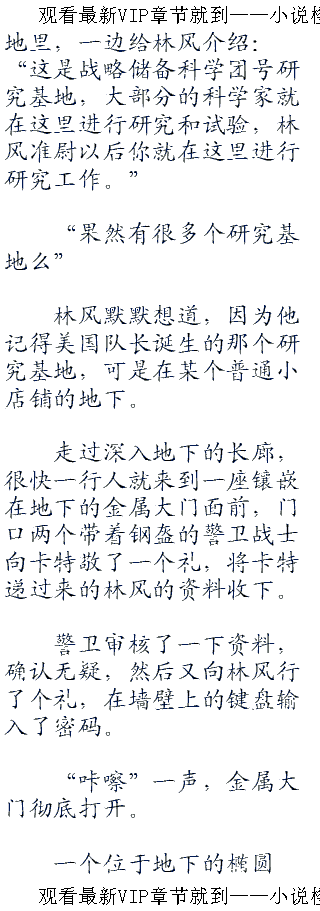 观看最新VIP章节就到——小说
地里，一边给林风介绍：
“这是战略储备科学团号研
究基地，大部分的科学家就
在这里进行研究和试验，林
风准尉以后你就在这里进行
研究工作。”
“果然有很多个研究基
地么”
林风默默想道，因为他
记得美国队长诞生的那个研
究基地，可是在某个普通小
店铺的地下。
走过深入地下的长廊，
很快一行人就来到一座镶嵌
在地下的金属大门面前，门
口两个带着钢盔的警卫战士
向卡特敬了一个礼，将卡特
递过来的林风的资料收下。
警卫审核了一下资料，
确认无疑，然后又向林风行
了个礼，在墙壁上的键盘输
入了密码。
“咔嚓”一声，金属大
门彻底打开。
一个位于地下的椭圆
观看最新VIP章节就到——小说